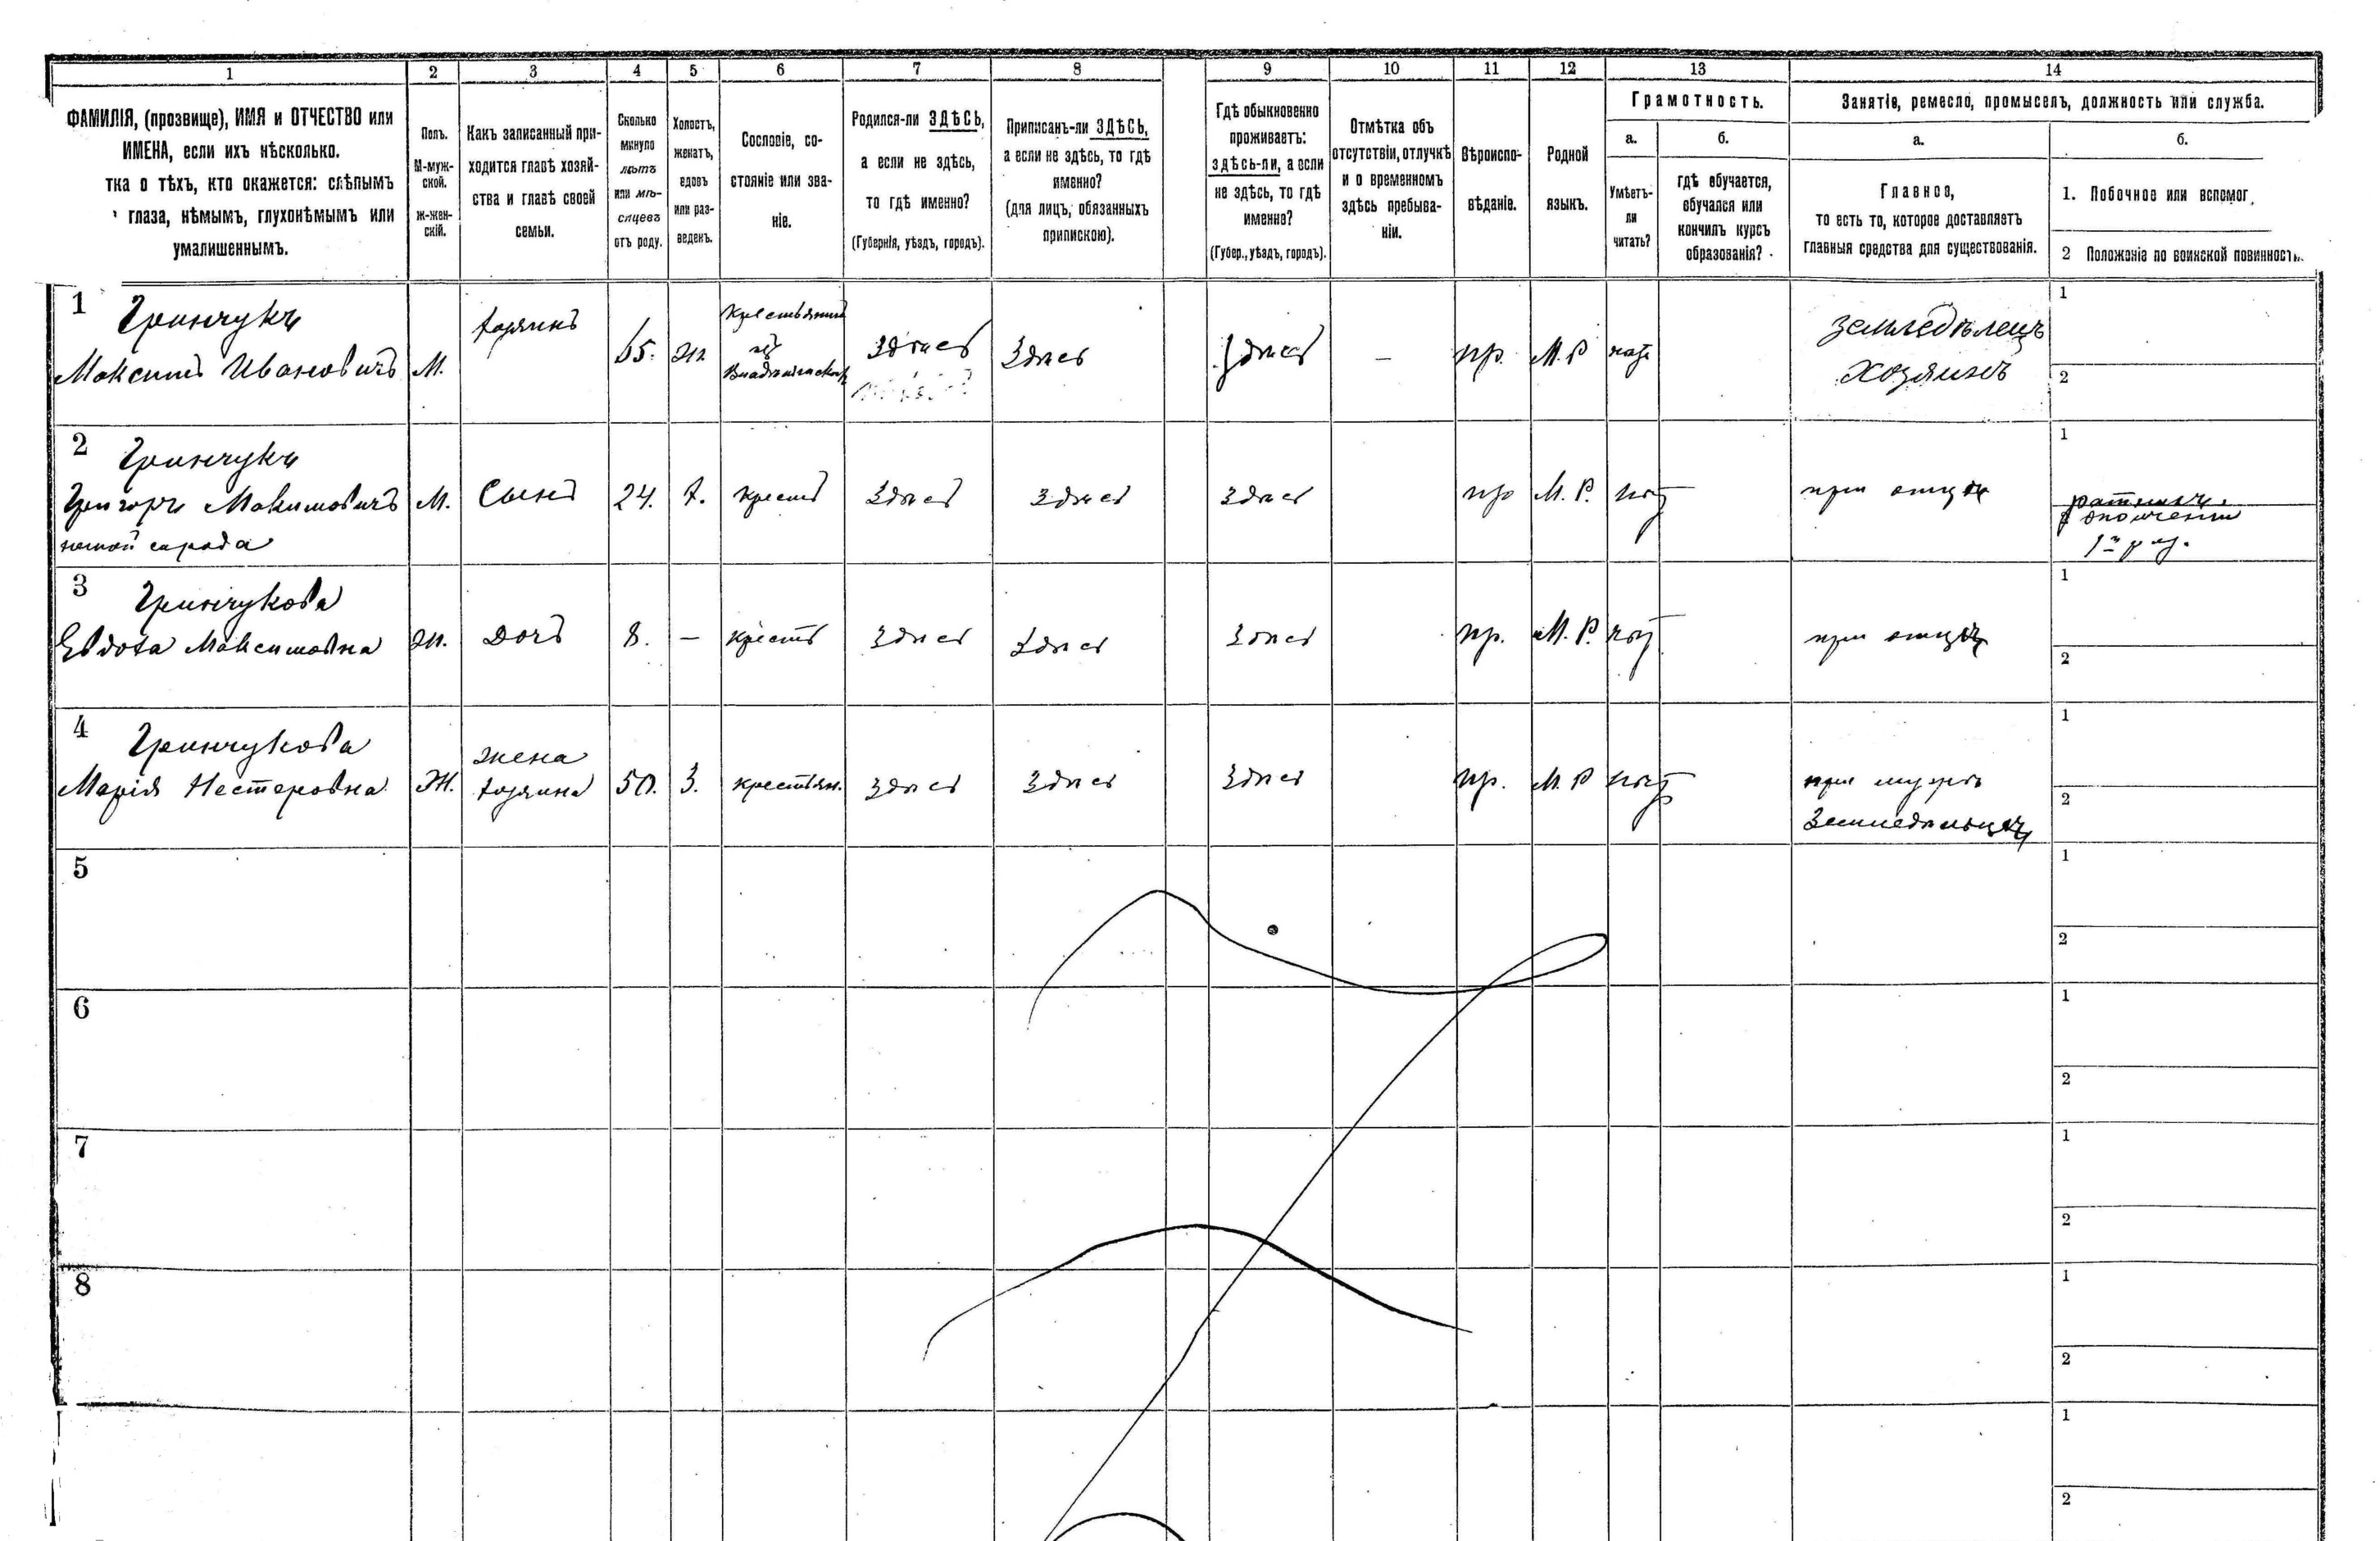 1 2 3 4 5 6 7 8 9 10 11 12 13 14
ФАМИЛІЯ, (прозвище), ИМЯ и ОТЧЕСТВО или
ИМЕНА, если ихъ нѣсколько.
тка о тѣхъ, кто окажется: слѣпымъ
глаза, нѣмымъ, глухонѣмымъ или
умалишеннымъ.
Полъ.
М-муж-
ской.
Ж-жен-
скій.
Какъ записанный при-
ходится главѣ хозяй-
ства и главѣ своей
семьи.
Сколько
минуло
лѣтъ
или мѣ-
сяцевъ
отъ роду.
Холостъ,
женатъ,
вдовъ
или раз-
веденъ.
Сословіе, со-
стояніе или зва-
ніе.
Родился-ли ЗДѢСЬ,
а если не здѣсь,
то гдѣ именно?
(Губернія, уѣздъ, городъ).
Приписанъ-ли ЗДѢСЬ,
а если не здѣсь, то гдѣ
именно?
(для лицъ, обязанныхъ
припискою).
Гдѣ обыкновенно
проживаетъ:
здѣсь-ли, а если
не здѣсь, то гдѣ
именно?
(Губер., уѣздъ, городъ).
Отмѣтка объ
отсутствіи, отлучкѣ
и о временномъ
здѣсь пребыва-
ніи.
Вѣроиспо-
вѣданіе.
Родной
языкъ.
Грамотность.
а.
Умѣетъ-
ли
читать?
б.
гдѣ обучается,
обучался или
кончилъ курсъ
образованія?
Занятіе, ремесло, промыселъ, должность или служба.
а.
Главное,
то есть то, которое доставляетъ
главныя средства для существованія.
б.
1. Побочное или вспомог.
2 Положеніе по воинской повинности.
1
Гринчукъ
Максимъ Ивановичъ
М.
хозяинъ
65.
ж
Крестьянинъ
изъ
здѣсь
здѣсь
здѣсь
–
пр.
М. Р
нѣтъ
земледѣлецъ
хозяинъ
1
2
2
Гринчукъ
Григоръ Максимовичъ
М.
Сынъ
24.
х.
крестъ
здѣсь
здѣсь
здѣсь
пр
М. Р.
нѣтъ
при отцѣ
1
ратникъ
ополченія
1го раз.
3
Гринчукова
Евдоха Максимовна
ж.
Дочь
8.
–
крестъ
здѣсь
здѣсь
здѣсь
пр.
М. Р.
нѣтъ
при отцѣ
1
2
4
Гринчукова
Марія Нестеровна
Ж.
жена
хозяина
50.
З.
крестьян.
здѣсь
здѣсь
здѣсь
пр.
М. Р
нѣтъ
при мужѣ
земледѣльцѣ
1
2
5
1
2
6
1
2
7
1
2
8
1
2
1
2